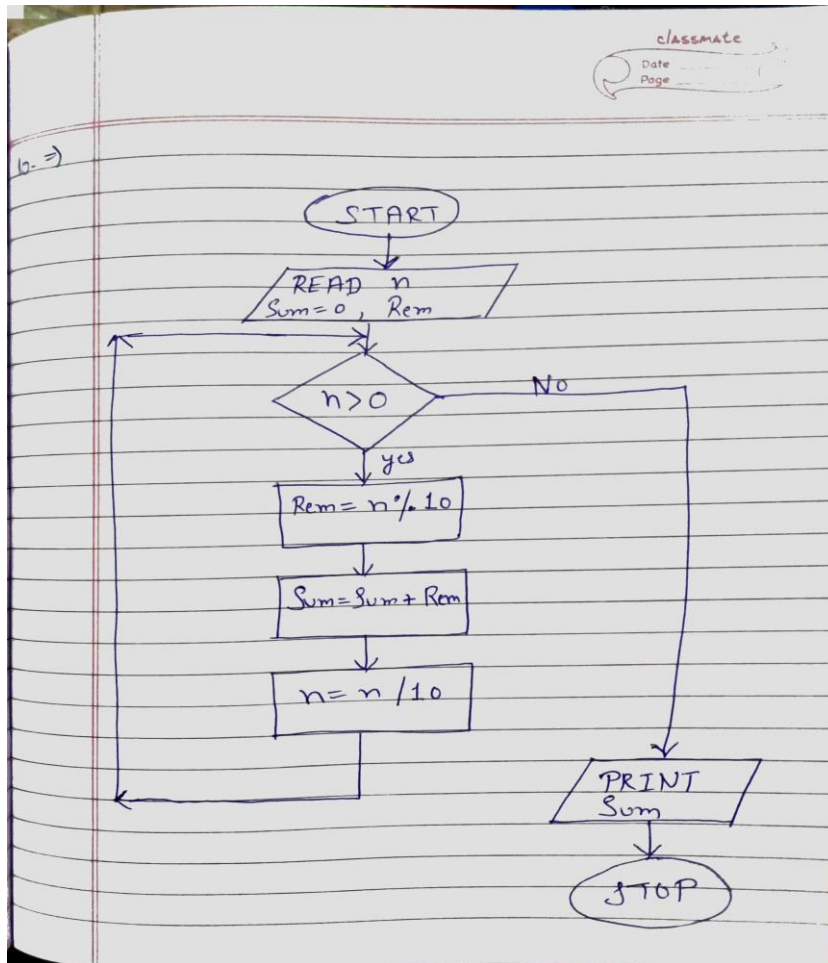 classmate
Date
Page
b. =>
START
READ n
Sum=0, Rem
n>0
No
yes
Rem= n%10
Sum=Sum+Rem
n= n/10
PRINT
Sum
STOP